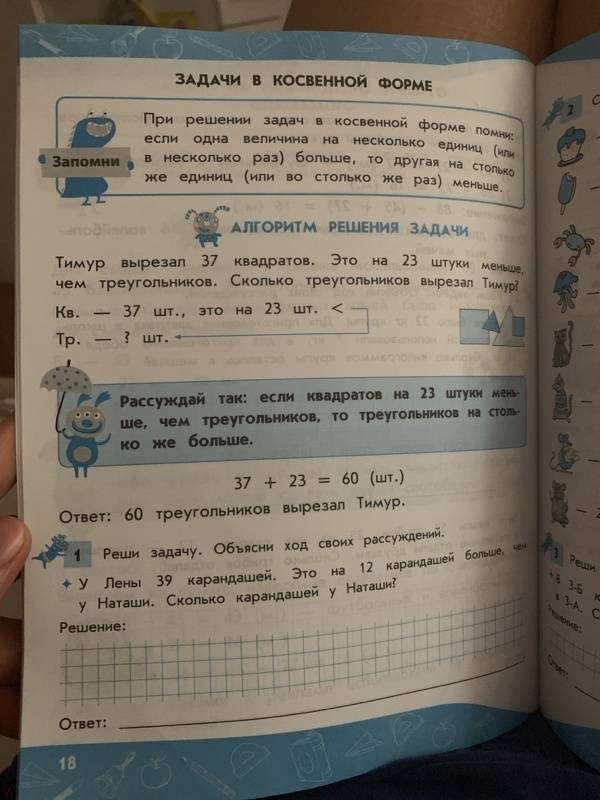 ЗАДАЧИ В КОСВЕННОЙ ФОРМЕ
Запомни
При решении задач в косвенной форме помни:
если одна величина на несколько единиц (или
в несколько раз) больше, то другая на столько
же единиц (или во столько же раз) меньше.
АЛГОРИТМ РЕШЕНИЯ ЗАДАЧИ
Тимур вырезал 37 квадратов. Это на 23 штуки меньше,
чем треугольников. Сколько треугольников вырезал Тимур?
Кв. — 37 шт., это на 23 шт. <
Тр. — ? шт.
Рассуждай так: если квадратов на 23 штуки мень-
ше, чем треугольников, то треугольников на столь-
ко же больше.
37 + 23 = 60 (шт.)
Ответ: 60 треугольников вырезал Тимур.
1 Реши задачу. Объясни ход своих рассуждений.
У Лены 39 карандашей. Это на 12 карандашей больше, чем
у Наташи. Сколько карандашей у Наташи?
Решение:
Ответ:
18
2
3 Реши
В 3-Б
в 3-А. С
Решение:
Ответ: